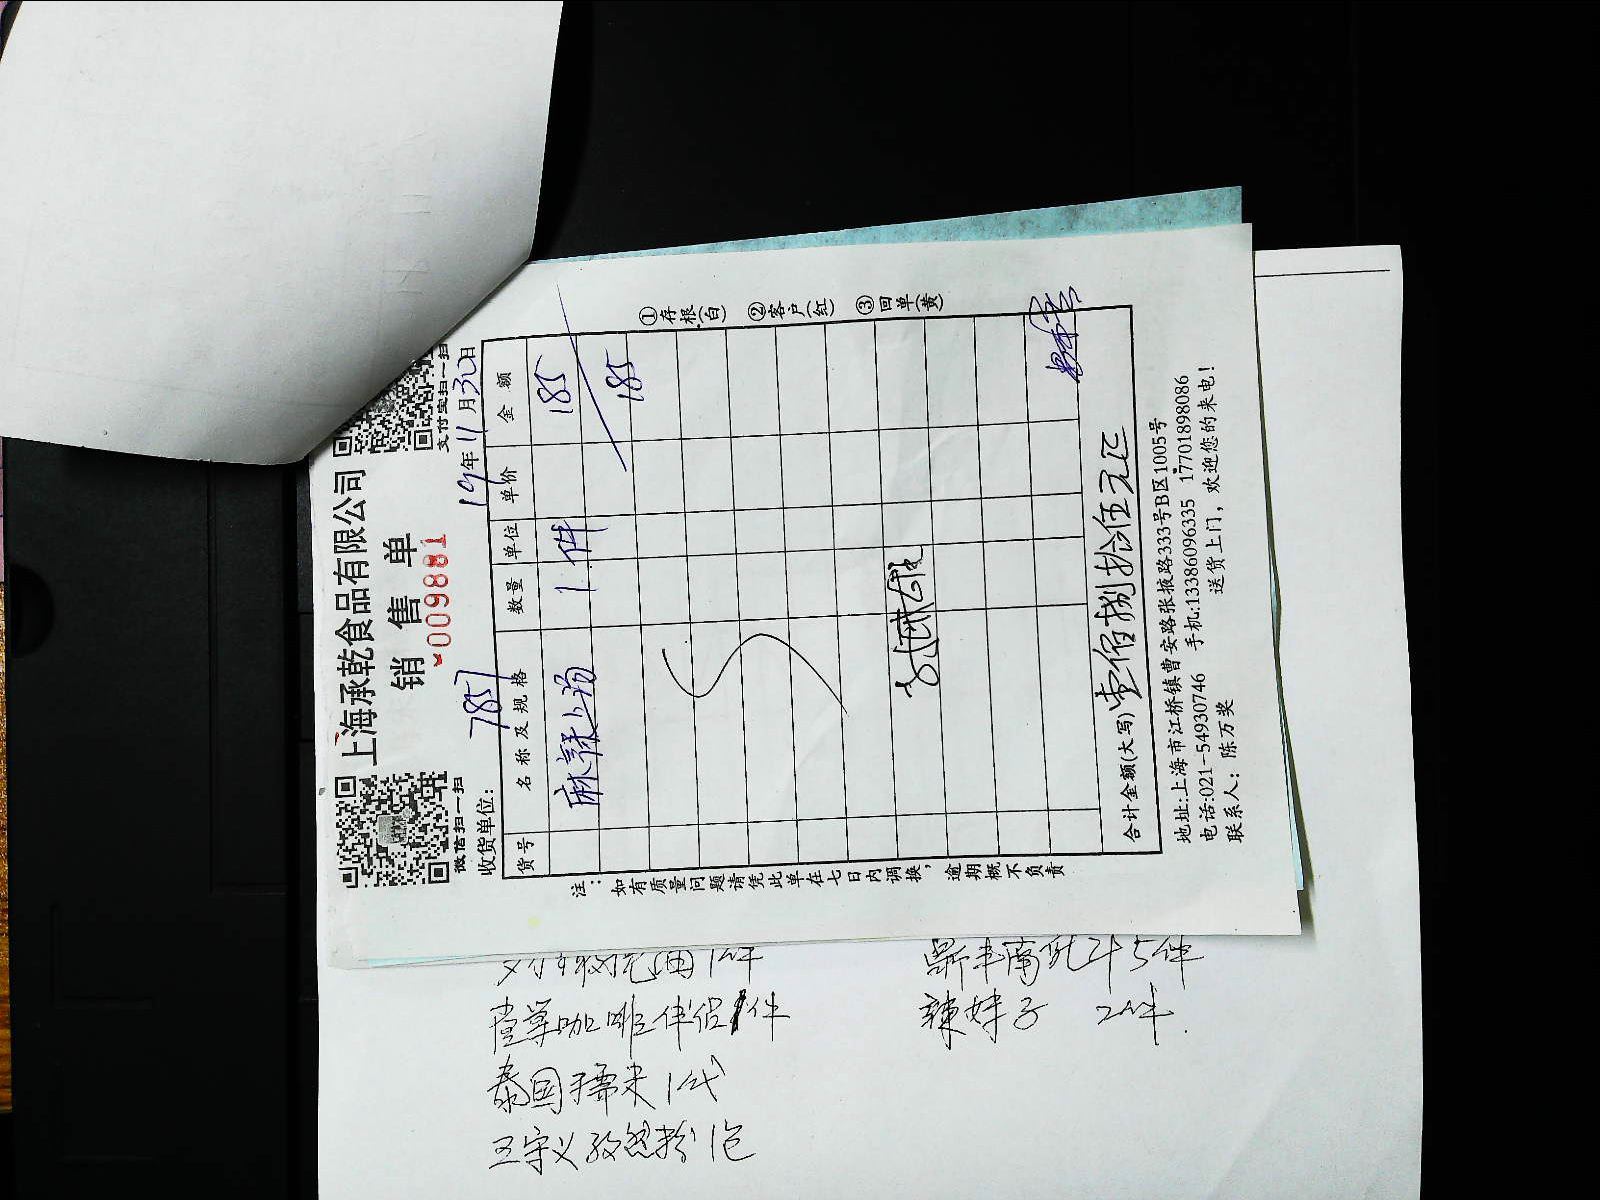 上海承乾食品有限公司
销售单
009881
微信扫一扫
支付宝扫一扫
收货单位: 7857 19年11月30日
货号 名称及规格 数量 单位 单价 金额
麻辣上汤 1 件 185
185
合计金额(大写) 壹佰捌拾伍元正
①存根(白) ②客户(红) ③回单(黄)
注:如有质量问题请凭此单在七日内调换,逾期概不负责
地址:上海市江桥镇曹安路张掖路333号B区1005号
电话:021-54930746 手机:13386096335 17701898086
联系人:陈万奖 送货上门,欢迎您的来电!
1件
5件
咖啡伴侣1件
辣妹子 2件
泰国糯米1代
王守义孜然粉1包